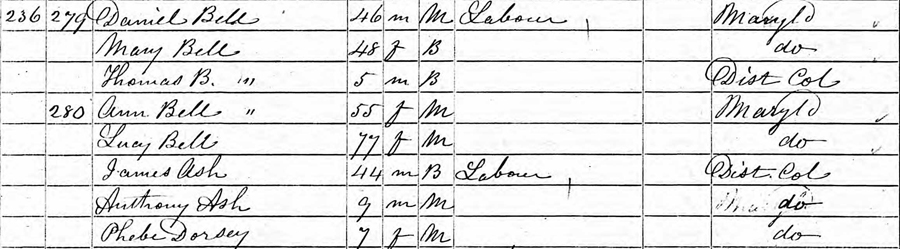 236 279 Daniel Bell 46 m M Labour Maryld
Mary Bell 48 f B do
Thomas B. " 5 m B Dist Col
280 Ann Bell " 55 f M Maryld
Lucy Bell 77 f M do
James Ash 44 m B Labour Dist. Col
Anthony Ash 9 m M do
Phebe Dorsey 7 f M do